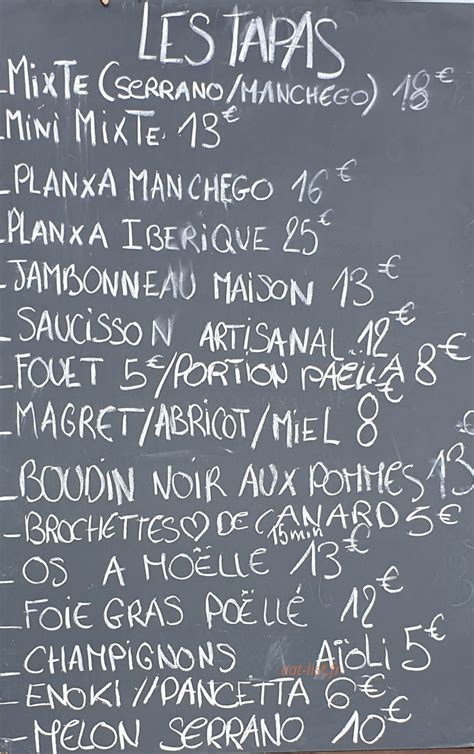 LES TAPAS
_MixTe (SERRANO/MANCHEGO) 18€
_MiNi MixTe 13€
_PLANXA MANCHEGO 16€
_PLANXA IBERIQUE 25€
_JAMBONNEAU MAISON 13€
_SAUCISSON ARTISANAL 12€
_FOUET 5€/PORTION PAËLLA 8€
_MAGRET/ABRICOT/MIEL 8€
_BOUDIN NOIR AUX POMMES 13
_BROCHETTES♡ DE CANARD 5€
15min
_OS A MOËLLE 13€
_FOIE GRAS POËLLÉ 12€
_CHAMPIGNONS AÏOLI 5€
_ENOKI//PANCETTA 6€
_MELON SERRANO 10€